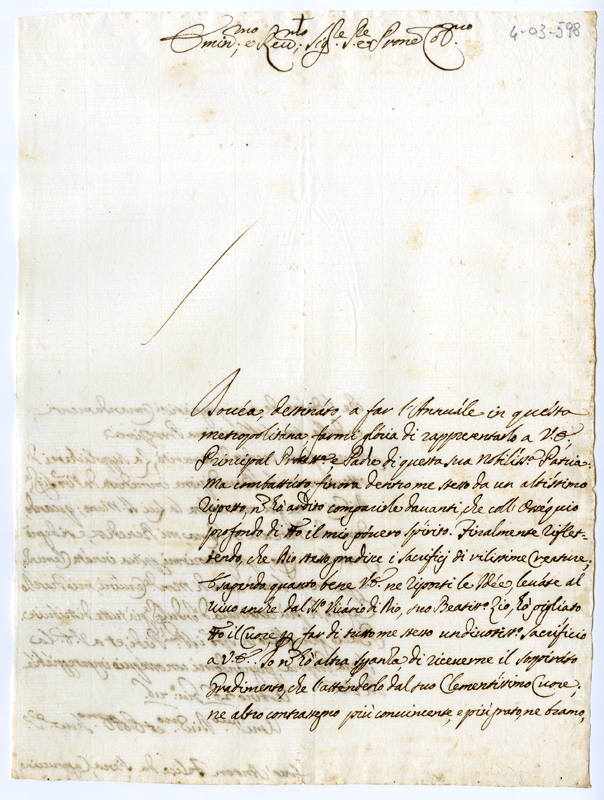 4-03-598
Emin.mo, e Reu.mo; Sig.r, P.re e Prone Col.mo
Douéa, destináto, a far l'Annuále in questa
metropolitána, farmi glória di rappresentarlo a V. E.
Principal e Padre di questa sua Nobiliss.a Patria.
Ma combattuto finora dentro me stesso da un altissimo
rispetto, nõ hò ardito comparirle dauanti, che coll'Osséquio
profondo di tto il mio póuero spírito. Finalmente riflet-
tendo, che Dio stesso gradisce i sacrifizj di vilissime creature;
E sapendo quanto bene V. E. ne riporti le Idée, leuate al
viuo anche dal S.to Vicario di Dio, suo Beatiss.o Zio, hò pigliato
tto il Cuore, p far di tutto me stesso un diuotiss.o sacrificio
a V. E. Io nõ hò altra speranza di riceuerne il sospiráto
Gradimento, che l'atténderlo dal suo Clementíssimo Cuore;
ne altro contrasegno più conuincente, e più grato, ne bramo,